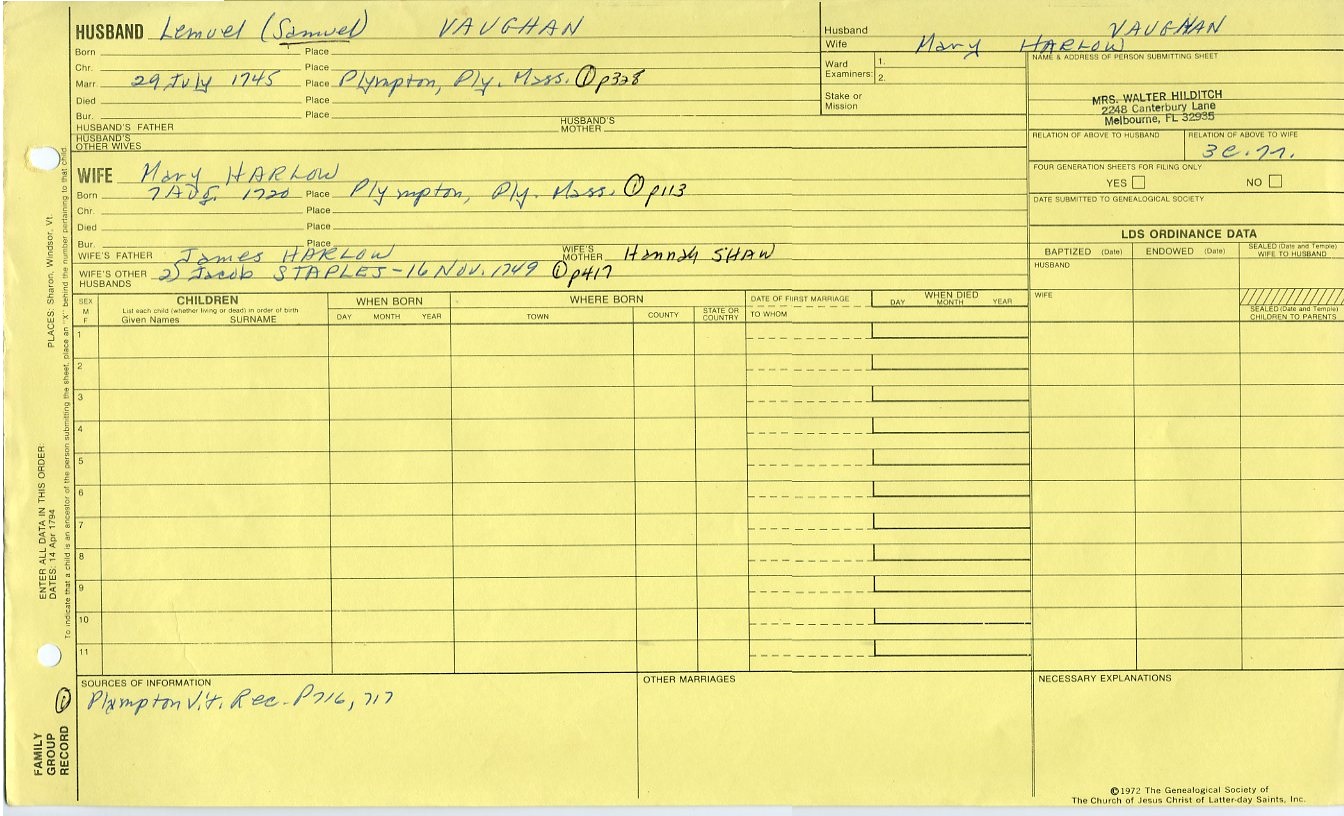 HUSBAND Lemuel (Samuel) VAUGHAN
Born Place
Chr. Place
Marr. 29 July 1745 Place Plympton, Ply. Mass. ① p328
Died Place
Bur. Place
HUSBAND'S FATHER HUSBAND'S MOTHER
HUSBAND'S OTHER WIVES
WIFE Mary HARLOW
Born 7 Aug. 1720 Place Plympton, Ply. Mass. ① p113
Chr. Place
Died Place
Bur. Place
WIFE'S FATHER James HARLOW WIFE'S MOTHER Hannah SHAW
WIFE'S OTHER HUSBANDS 2) Jacob STAPLES - 16 Nov. 1749 ① p417
Husband VAUGHAN
Wife Mary HARLOW
Ward Examiners: 1.
2.
Stake or Mission
NAME & ADDRESS OF PERSON SUBMITTING SHEET
MRS. WALTER HILDITCH
2248 Canterbury Lane
Melbourne, FL 32935
RELATION OF ABOVE TO HUSBAND RELATION OF ABOVE TO WIFE
3 C. 7r.
FOUR GENERATION SHEETS FOR FILING ONLY
YES NO
DATE SUBMITTED TO GENEALOGICAL SOCIETY
LDS ORDINANCE DATA
BAPTIZED (Date) ENDOWED (Date) SEALED (Date and Temple) WIFE TO HUSBAND
HUSBAND
WIFE
SEALED (Date and Temple) CHILDREN TO PARENTS
SEX M F
CHILDREN
List each child (whether living or dead) in order of birth
Given Names SURNAME
WHEN BORN
DAY MONTH YEAR
WHERE BORN
TOWN COUNTY STATE OR COUNTRY
DATE OF FIRST MARRIAGE
TO WHOM
WHEN DIED
DAY MONTH YEAR
1
2
3
4
5
6
7
8
9
10
11
SOURCES OF INFORMATION
① Plympton Vit. Rec. P716, 717
OTHER MARRIAGES
NECESSARY EXPLANATIONS
©1972 The Genealogical Society of
The Church of Jesus Christ of Latter-day Saints, Inc.
FAMILY GROUP RECORD
ENTER ALL DATA IN THIS ORDER:
DATES: 14 Apr 1794
PLACES: Sharon, Windsor, Vt.
To indicate that a child is an ancestor of the person submitting the sheet, place an "X" behind the number pertaining to that child.